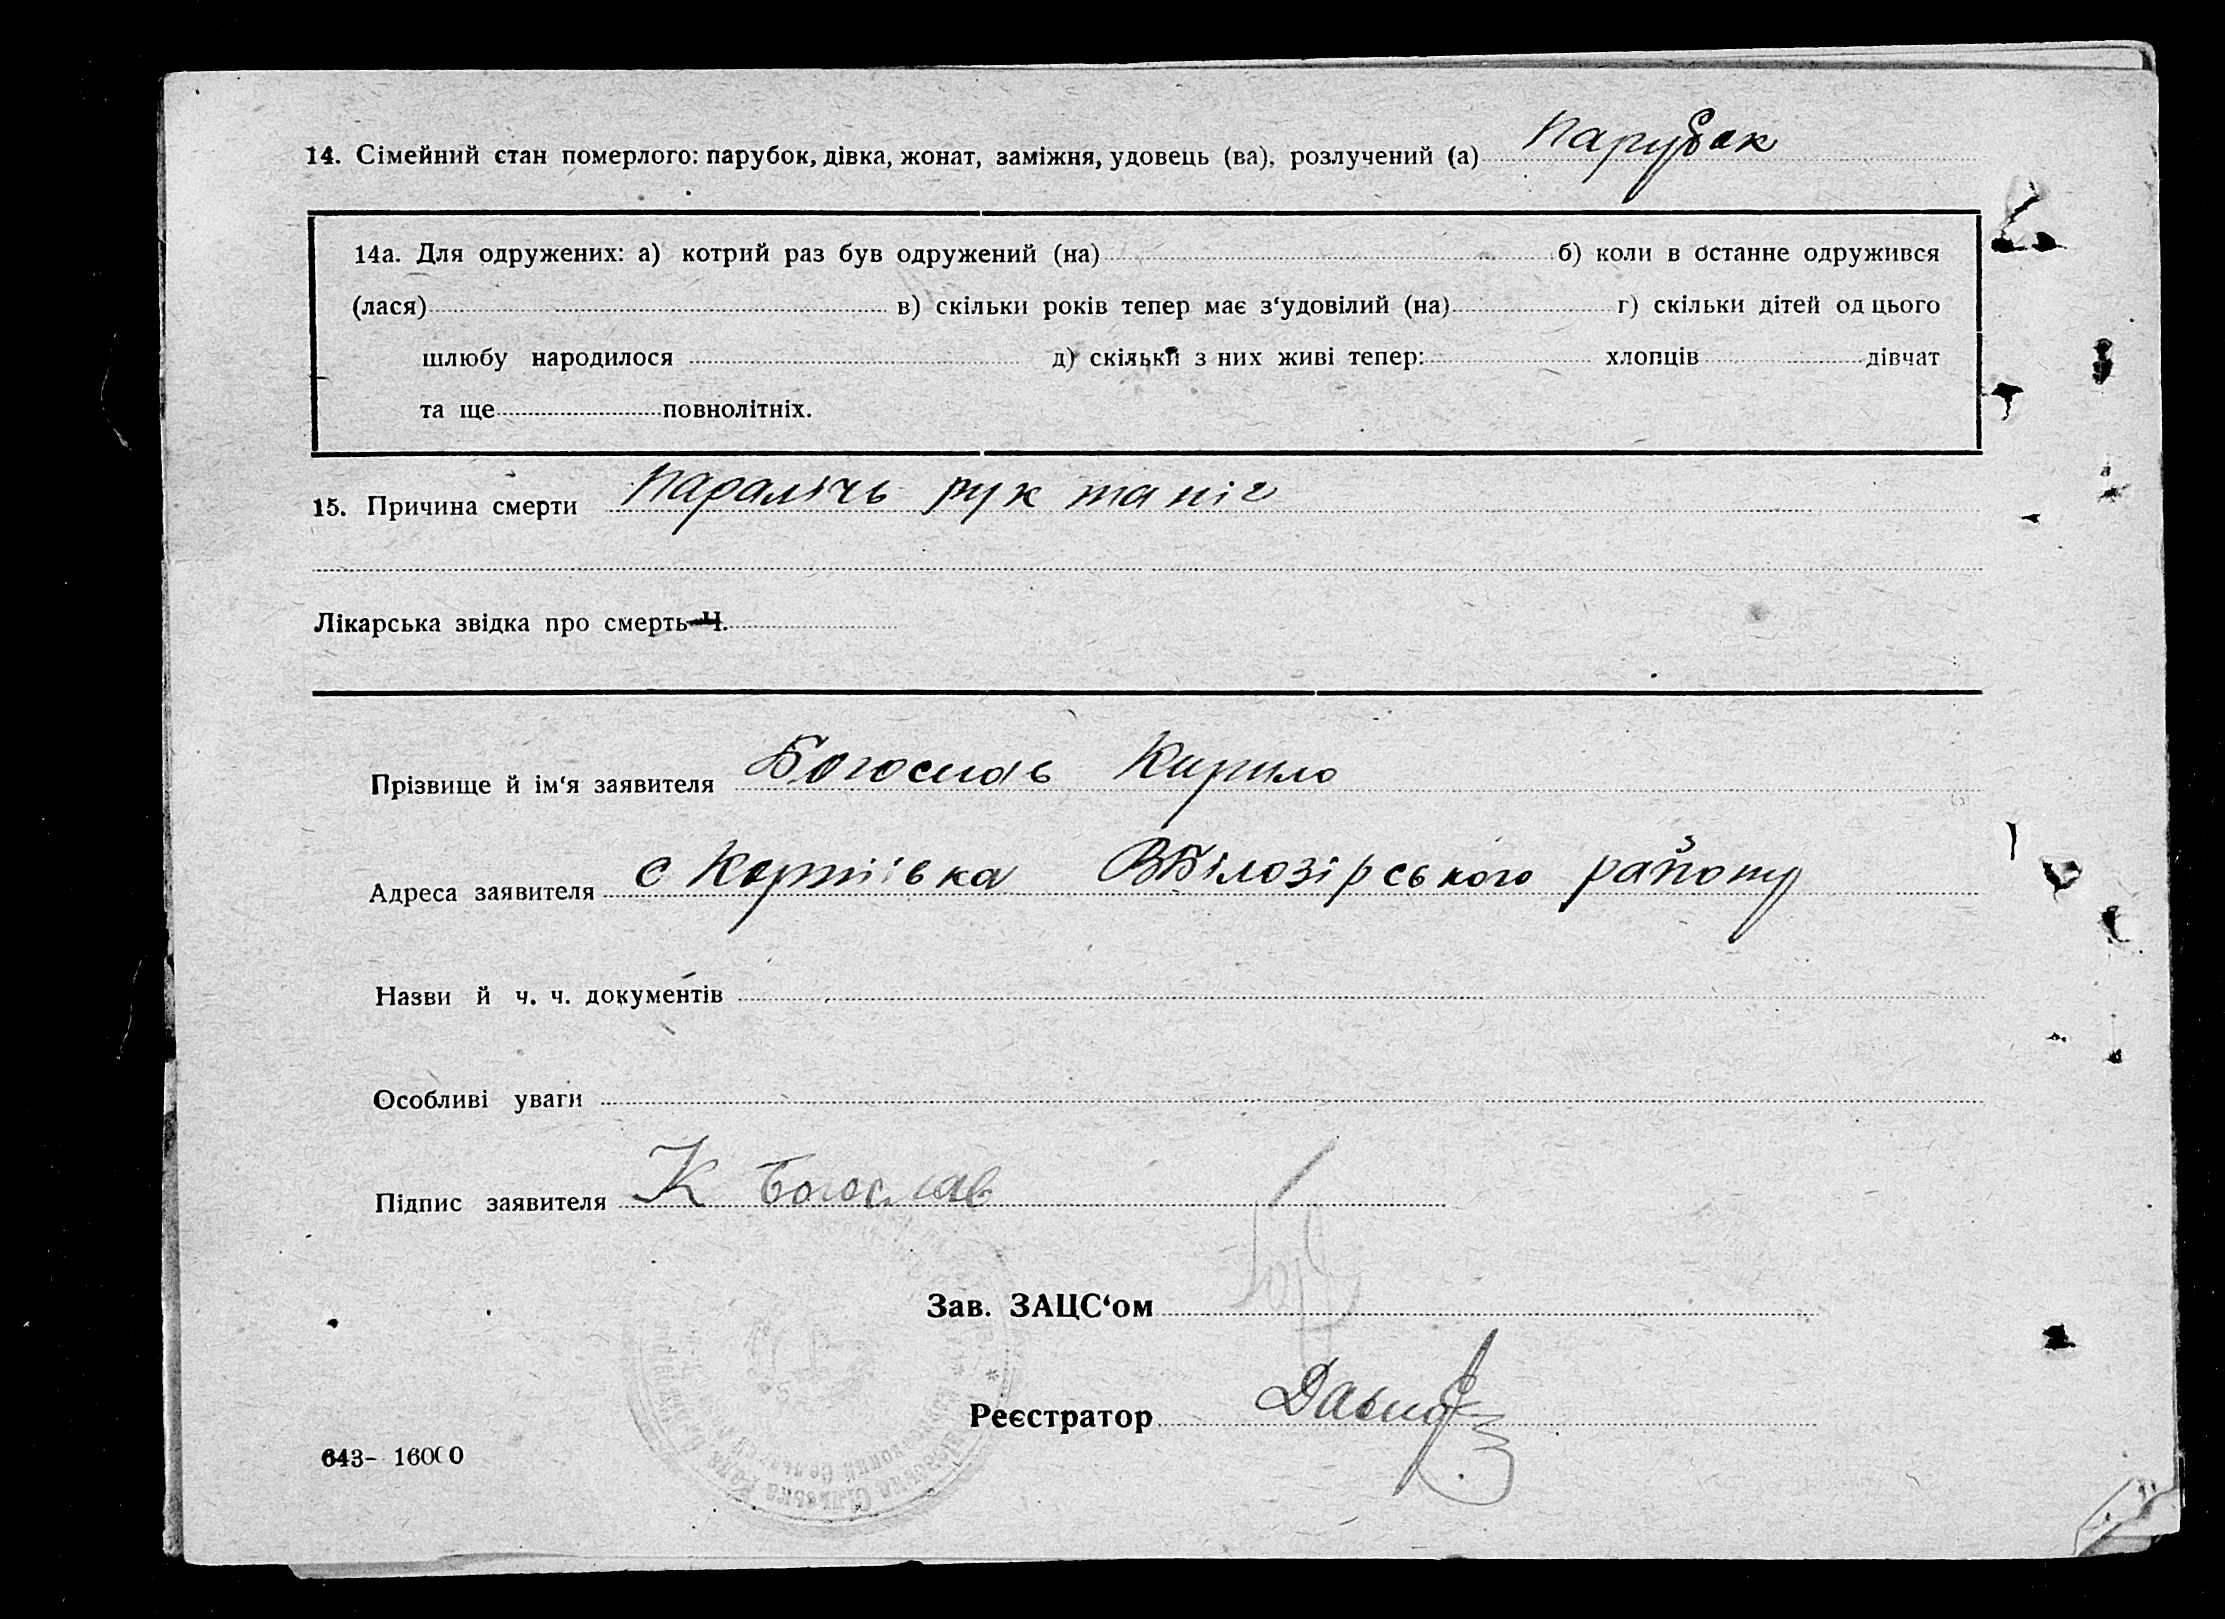 14. Сімейний стан померлого: парубок, дівка, жонат, заміжня, удовець (ва), розлучений (а) Парубок
14а. Для одружених: а) котрий раз був одружений (на) б) коли в останне одружився
(лася) в) скільки років тепер має з‘удовілий (на) г) скільки дітей од цього
шлюбу народилося д) скільки з них живі тепер: хлопців дівчат
та ще повнолітніх.
15. Причина смерти Параличь рук та ніг
Лікарська звідка про смерть Ч.
Прізвище й ім‘я заявителя Богослав Кирило
Адреса заявителя с ВБілозірського району
Назви й ч. ч. документів
Особливі уваги
Підпис заявителя К Богослав
Зав. ЗАЦС‘ом
Реєстратор
643- 16000